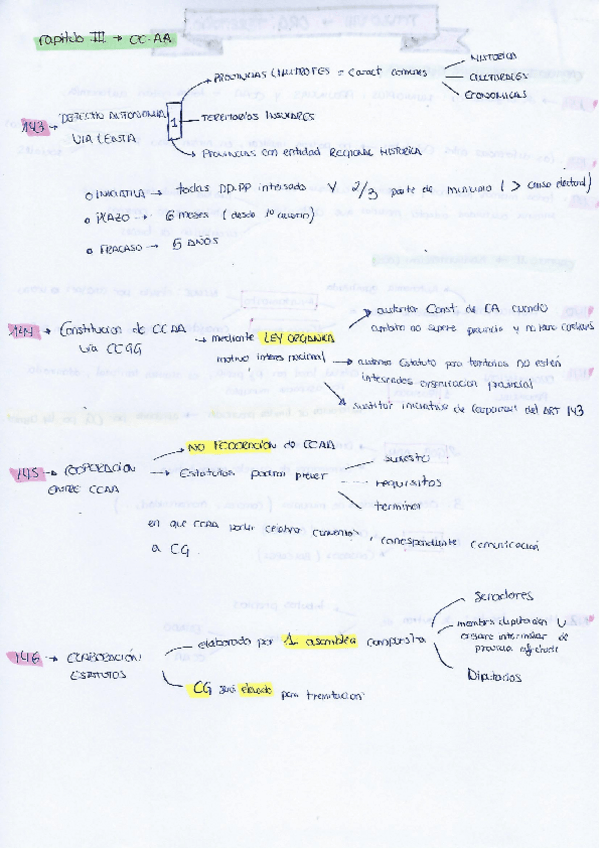 Capitulo III → CC.AA
143 → DERECHO AUTONOMIA
VIA LENTA
1
PROVINCIAS LIMITROFES = caract comunes
HISTORICA
CULTURALES
ECONOMICAS
TERRITORIOS INSULARES
PROVINCIAS con entidad REGIONAL HISTORICA
o INICIATIVA → todas DD.PP interesado y 2/3 parte de municipio ( > censo electoral)
o PLAZO → 6 meses ( desde 1º acuerdo)
o FRACASO → 5 AÑOS
144 → Constitucion de CCAA
via CCGG
→ mediante LEY ORGANICA
motivo interes nacional
autorizar Const. de CA cuando
ambito no supere provincia y no
autorizar Estatuto para territorios NO estén
integrados organización provincial
sustituir iniciativa de Corporac. del ART 143
145 → COOPERACION
ENTRE CCAA
NO FEDERACION de CCAA
→ Estatutos podran prever
supuesto
requisitos
terminos
en que CCAA podrán celebrar convenios, correspondiente comunicación
a CG
146 → ELABORACIÓN
ESTATUTOS
elaborado por 1 asamblea compuesta
Senadores
miembros diputación U
organo interinsular de
provincia
Diputados
CG será elevado para tramitacion